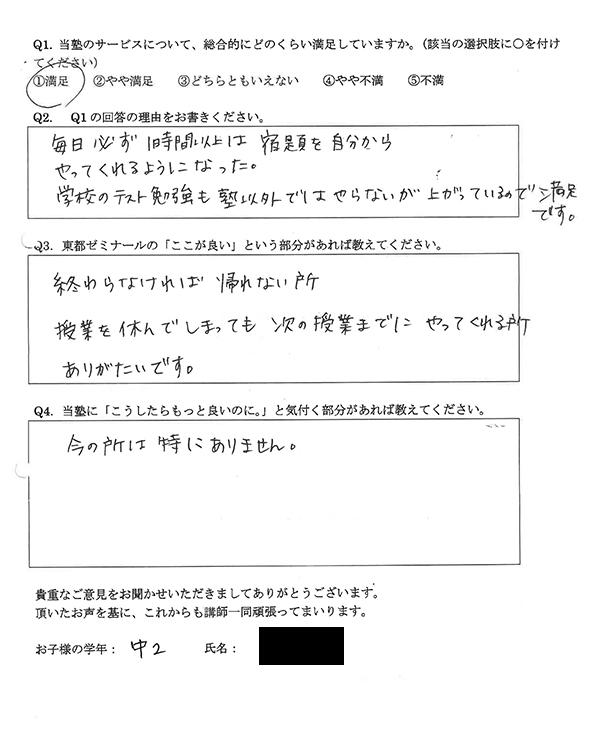 Q1. 当塾のサービスについて、総合的にどのくらい満足していますか。（該当の選択肢に〇を付け
てください）
①満足 ②やや満足 ③どちらともいえない ④やや不満 ⑤不満
Q2. Q1の回答の理由をお書きください。
毎日 必ず 1時間以上は 宿題を自分から
やってくれるようになった。
学校のテスト勉強も 塾以外ではやらないが 上がっているので 満足
です。
Q3. 東都ゼミナールの「ここが良い」という部分があれば教えてください。
終わらなければ 帰れない所
授業を休んでしまっても 次の授業までに やってくれる所
ありがたいです。
Q4. 当塾に「こうしたらもっと良いのに。」と気付く部分があれば教えてください。
今の所は 特にありません。
貴重なご意見をお聞かせいただきましてありがとうございます。
頂いたお声を基に、これからも講師一同頑張ってまいります。
お子様の学年： 中2 氏名：